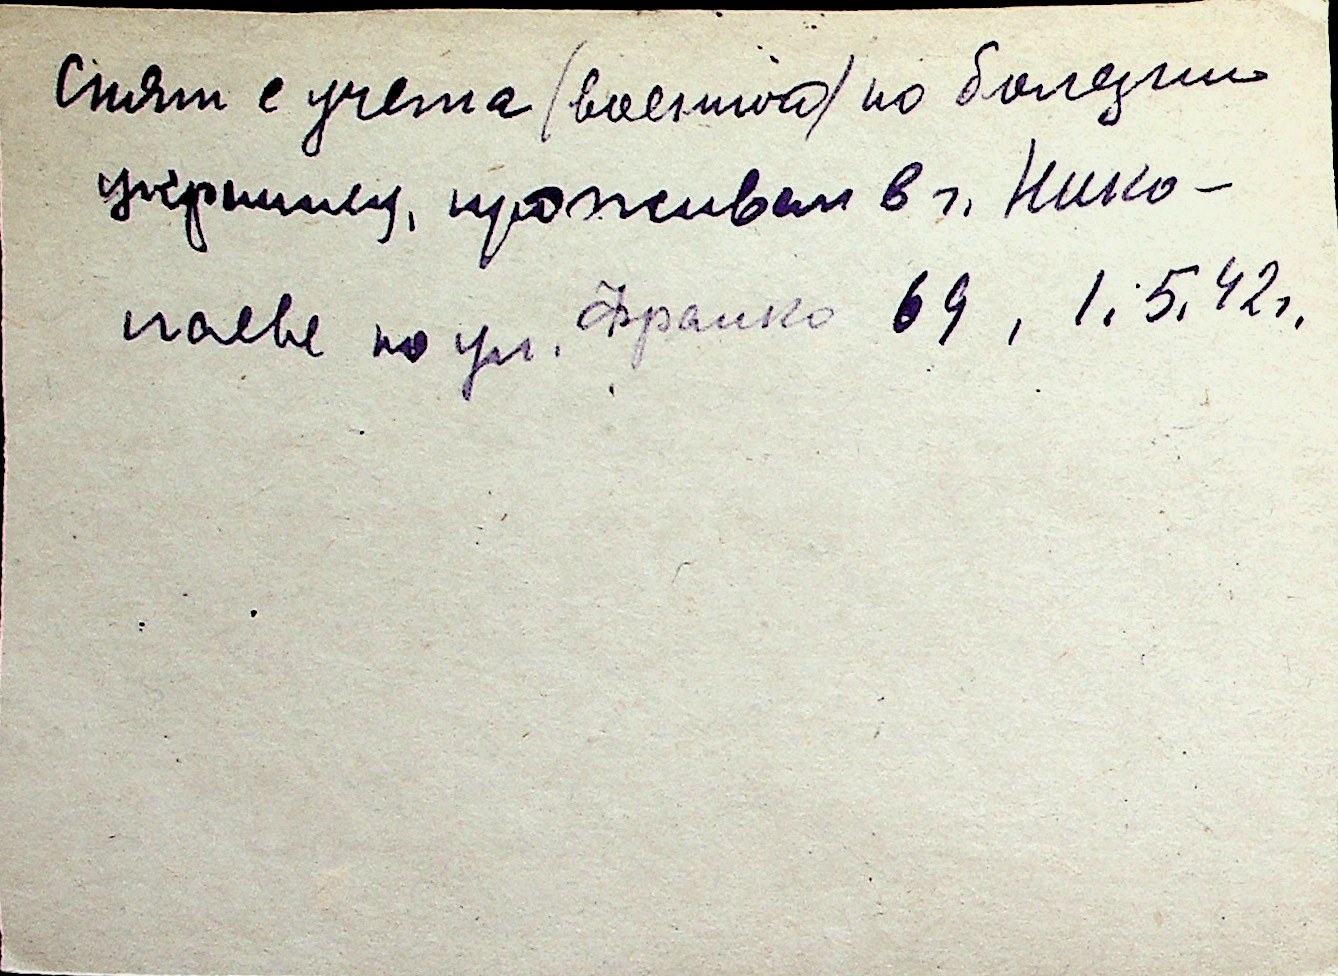 Снят с учета (военного) по болезни
украинец, проживал в г. Нико-
лаеве по ул. Франко 69, 1.5.42г.